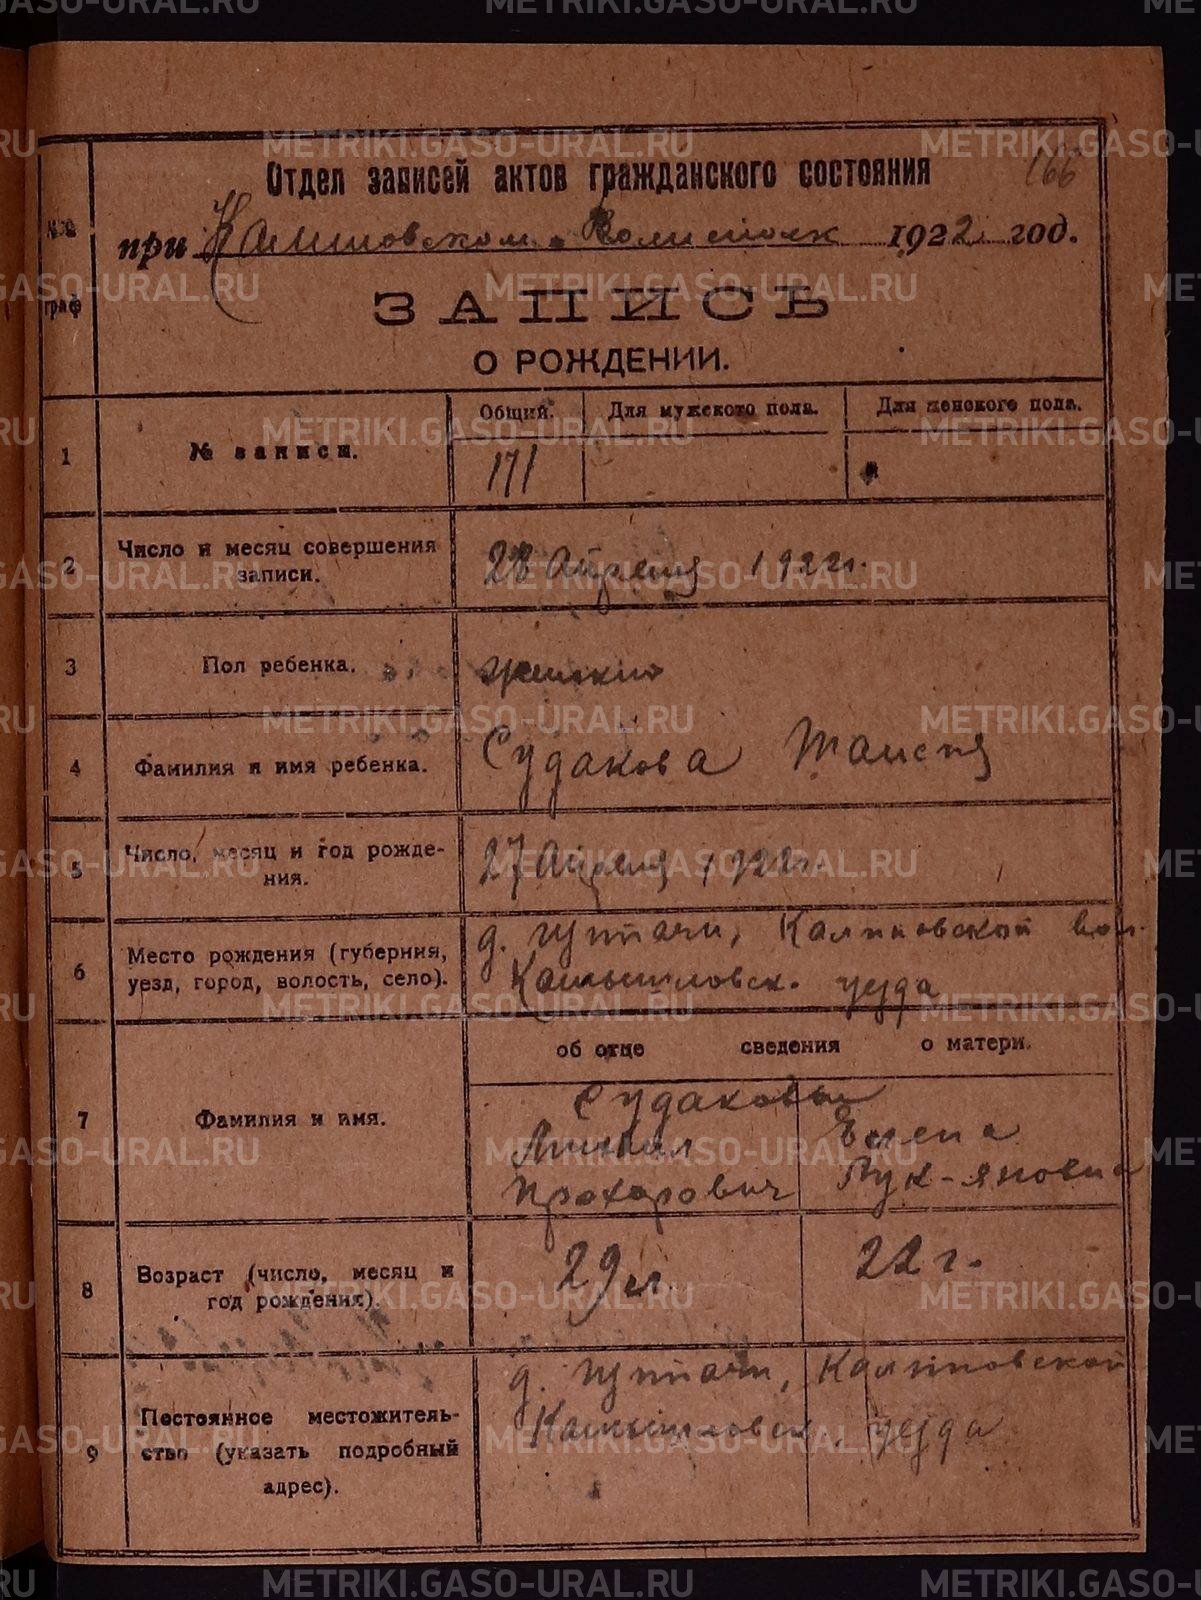 166
Отдел записей актов гражданского состояния
при Калиновском Волисполк 1922 год.
№№ граф
ЗАПИСЬ
О РОЖДЕНИИ.
Общий. Для мужского пола. Для женского пола.
1 № записи. 171 "
2 Число и месяц совершения записи. 28 Апреля 1922 г.
3 Пол ребенка. женский
4 Фамилия и имя ребенка. Судакова Таисия
5 Число, месяц и год рожде-
ния. 27 Апреля 1922 г.
6 Место рождения (губерния, д. Чупачи, Калиновской вол.
уезд, город, волость, село). Камышловск. уезда
об отце сведения о матери.
7 Фамилия и имя. Судаковы
Михаил Елена
Прохорович Лук-яновна
8 Возраст (число, месяц и 29 л. 22 г.
год рождения).
9 Постоянное местожитель- д. Калиновской
ство (указать подробный Камышловск. уезда
адрес).
METRIKI.GASO-URAL.RU